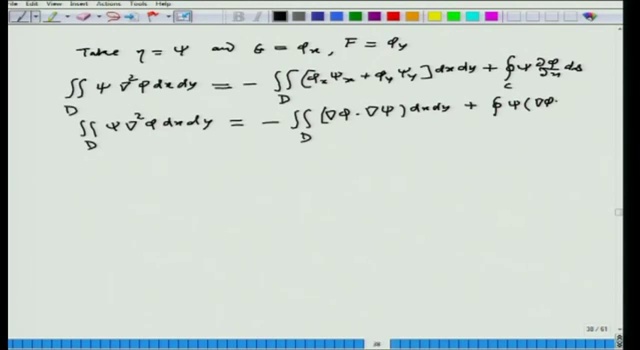 Edit View Insert Actions Tools Help
Take η = ψ and G = φx, F = φy
∬D ψ ∇²φ dxdy = - ∬D [φxψx + φyψy] dxdy + ∮c ψ ∂φ/∂n ds
∬D ψ ∇²φ dxdy = - ∬D (∇φ · ∇ψ) dxdy + ∮ ψ (∇φ·
38 / 61
38